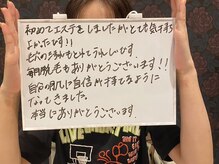 初めてエステをしましたがとても気持ち
よかったです!!
毛穴の汚れもとれてうれしいです。
毎回脱毛もありがとうございます!!
自分の肌に自信が持てるように
なってきました。
本当にありがとうございます。